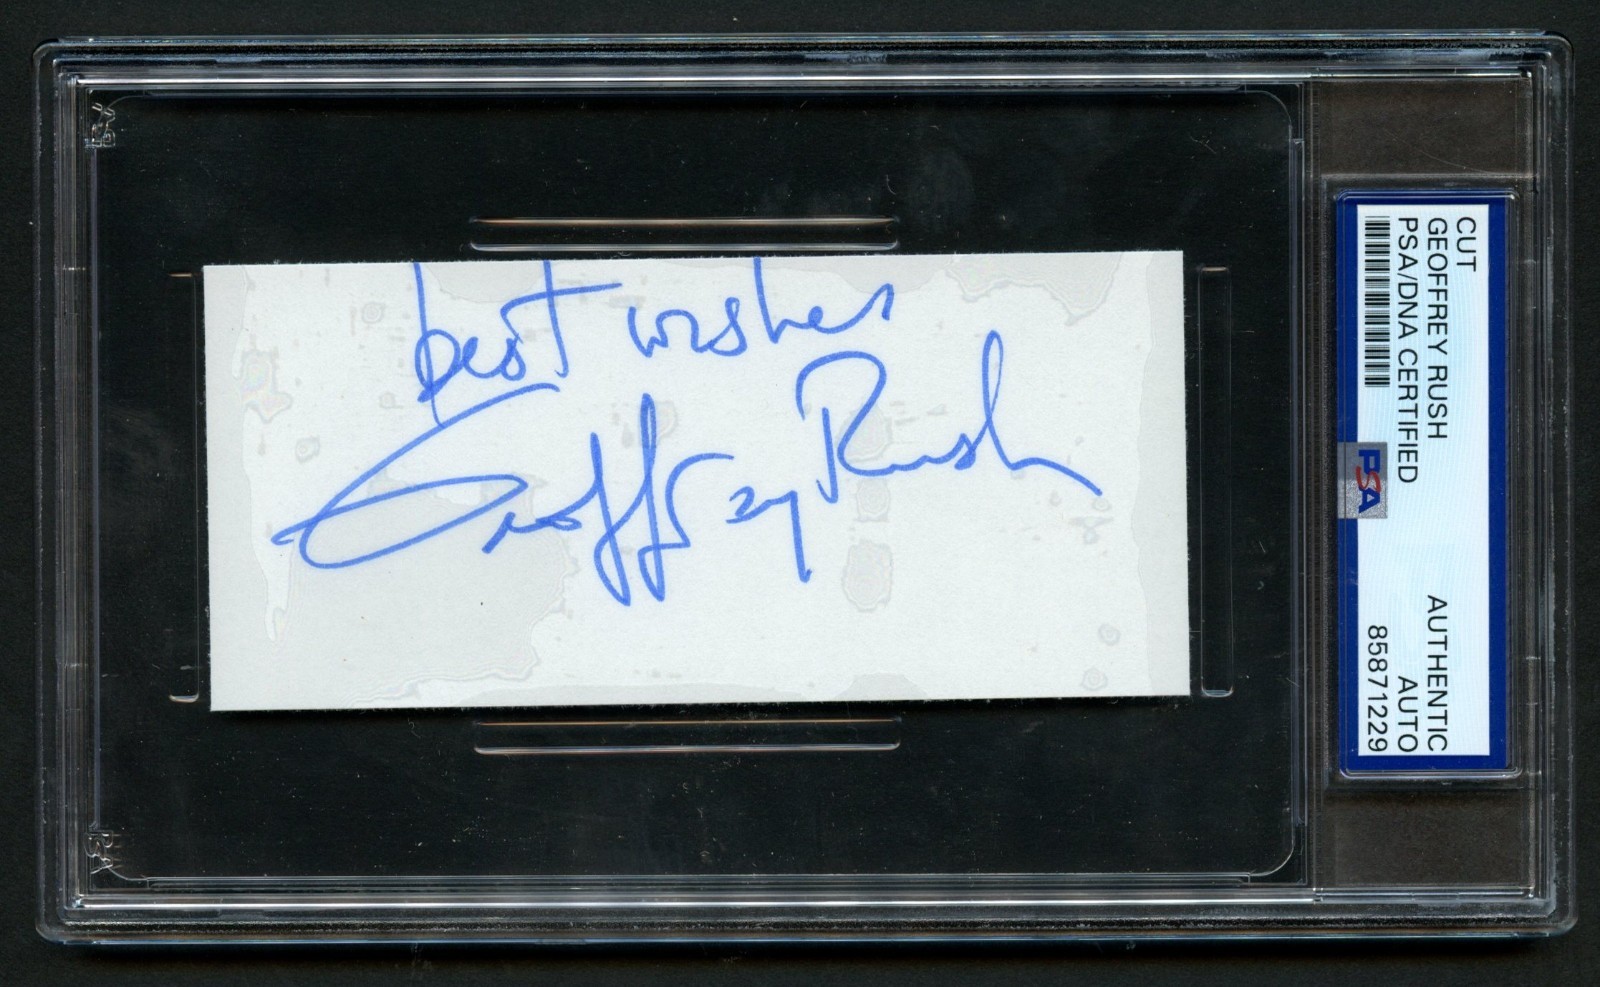 best wishes
Geoffrey Rush
CUT
GEOFFREY RUSH
AUTHENTIC
PSA/DNA CERTIFIED
AUTO
85871229
PSA
PSA